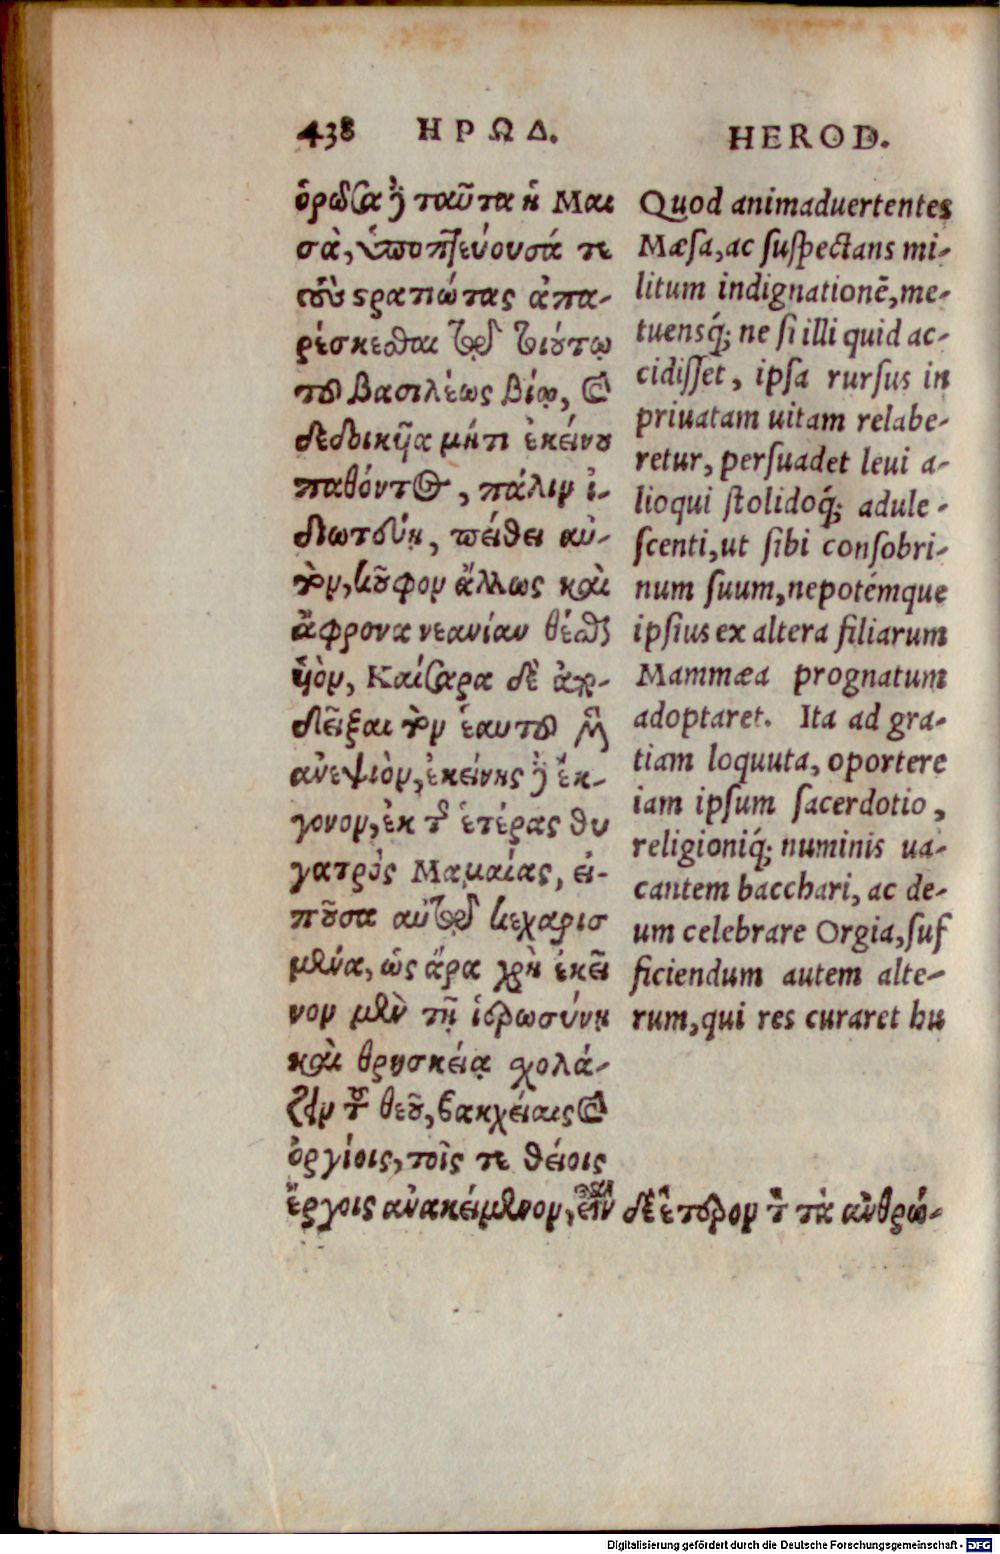 438 ΗΡΩΔ. HEROD.
ὁρῶσα δὲ ταῦτα ἡ Μαι
σὰ, ὑποπτεύουσά τε
τοὺς στρατιώτας ἀπα-
ρέσκεσθαι τῷ τοιούτῳ
τοῦ βασιλέως βίῳ, καὶ
δεδοικῆα μήτι ἐκείνου
παθόντος, πάλιν ἰ-
διωτεύῃ, πείθει αὐ-
τὸν, κοῦφον ἄλλως καὶ
ἄφρονα νεανίαν θέσθαι
ὑὸν, Καίσαρα δὲ ἀπο-
δεῖξαι τὸν ἑαυτοῦ μὲν
ἀνεψιὸν, ἐκείνης δὲ ἔκ-
γονον, ἐκ τῆς ἑτέρας θυ
γατρὸς Μαμαίας, εἰ-
ποῦσα αὐτῷ κεχαρισ
μένα, ὡς ἄρα χρὴ ἐκεῖ
νον μὲν τῇ ἱερωσύνῃ
καὶ θρησκείᾳ σχολά-
ζειν τοῦ θεοῦ, βακχείαις καὶ
ὀργίοις, τοῖς τε θείοις
ἔργοις ἀνακείμενον, εἶναι δὲ ἕτερον τὸν τὰ ἀνθρώ-
Quod animaduertentes
Mæsa, ac suspectans mi-
litum indignationē, me-
tuensq́; ne si illi quid ac-
cidisset, ipsa rursus in
priuatam uitam relabe-
retur, persuadet leui a-
lioqui stolidoq́; adule-
scenti, ut sibi consobri-
num suum, nepotémque
ipsius ex altera filiarum
Mammæa prognatum
adoptaret. Ita ad gra-
tiam loquuta, oportere
iam ipsum sacerdotio,
religioniq́; numinis ua-
cantem bacchari, ac de-
um celebrare Orgia, suf
ficiendum autem alte-
rum, qui res curaret hu
Digitalisierung gefördert durch die Deutsche Forschungsgemeinschaft - DFG